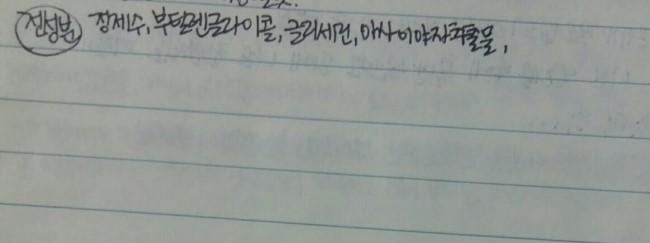 전성분 정제수, 부틸렌글라이콜, 글리세린, 아사이야자추출물,